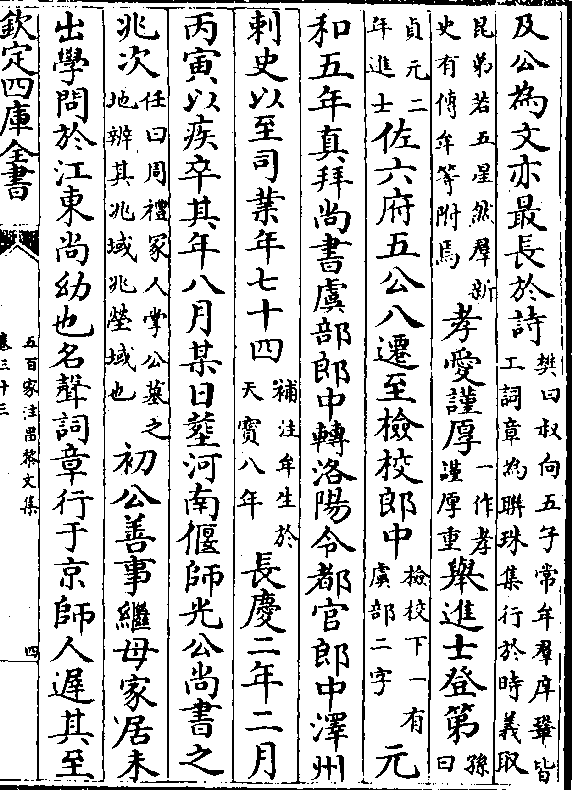 及公為文亦最長於詩樊曰叔向五子常牟羣庠鞏皆工詞章為聯珠集行於時義取
昆弟若五星然羣新史有傳牟等附焉孝愛謹厚一作孝謹厚重舉進士登第孫曰
貞元二年進士佐六府五公八遷至檢校郎中檢校下一有虞部二字元
和五年真拜尚書虞部郎中轉洛陽令都官郎中澤州
刺史以至司業年七十四補注牟生於天寶八年長慶二年二月
丙寅以疾卒其年八月某日塟河南偃師光公尚書之
兆次任曰周禮冢人掌公墓之地辨其兆域兆塋域也初公善事繼母家居未
出學問於江東尚幼也名聲詞章行于京師人遲其至
欽定四庫全書
五百家注昌黎文集
卷三十三
四